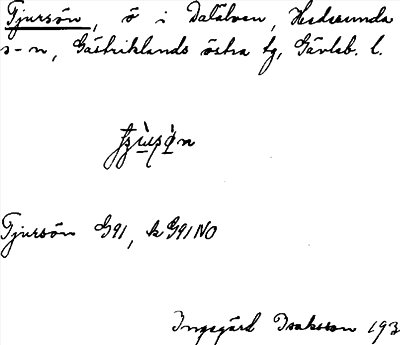 Tjursön, ö i Dalälven, Hedesunda
s-n, Gästriklands östra tg, Gävleb. l.
Tjursön G91, k G91NO
Ingegärd Isaksson 193